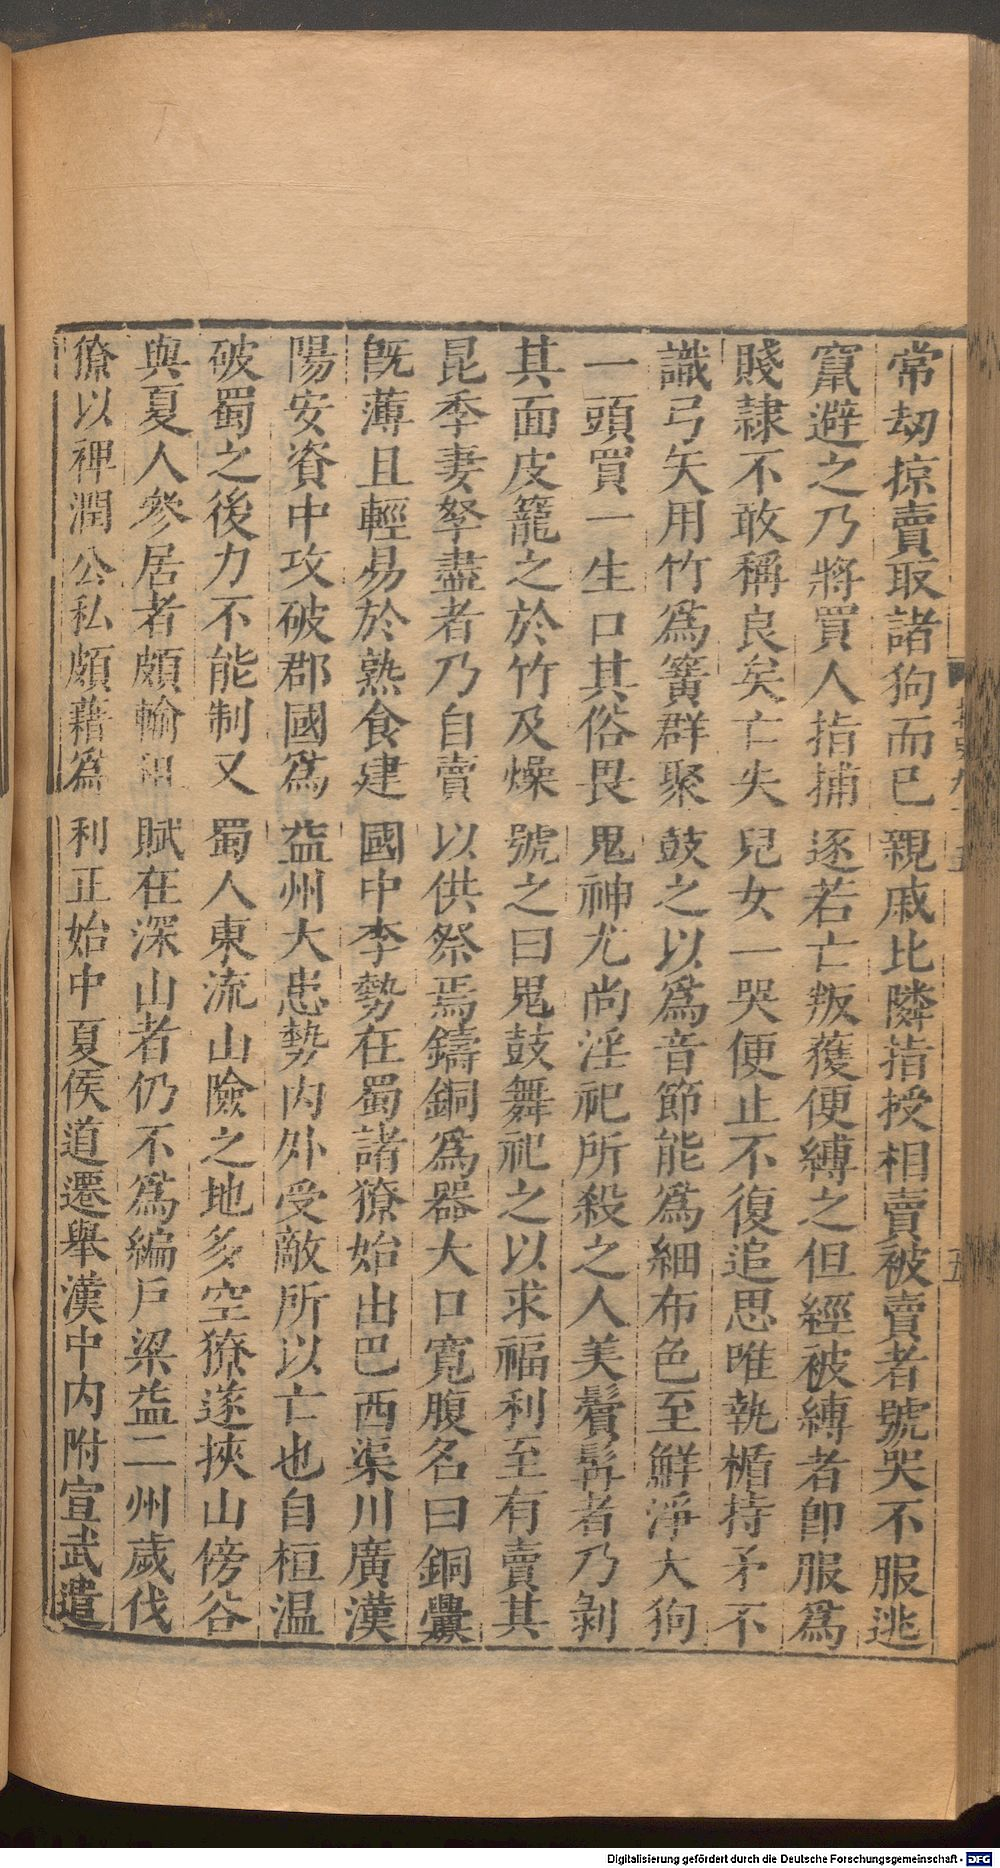 常劫掠賣取諸狗而已親戚比隣指授相賣被賣者號哭不服逃
竄避之乃將買人指捕逐若亡叛獲便縛之但經被縛者卽服為
賤隸不敢稱良矣亡失兒女一哭便止不復追思唯執楯持矛不
識弓矢用竹為簧群聚鼓之以為音節能為細布色至鮮淨大狗
一頭買一生口其俗畏鬼神尤尚淫祀所殺之人美鬢髯者乃剝
其面皮籠之於竹及燥號之曰鬼鼓舞祀之以求福利至有賣其
昆季妻孥盡者乃自賣以供祭焉鑄銅為器大口寬腹名曰銅爨
旣薄且輕易於熟食建國中李勢在蜀諸獠始出巴西渠川廣漢
陽安資中攻破郡國為益州大患勢內外受敵所以亡也自桓温
破蜀之後力不能制又蜀人東流山險之地多空獠遂挾山傍谷
與夏人參居者頗輸租賦在深山者仍不為編戶梁益二州歲伐
獠以裨潤公私頗藉為利正始中夏侯道遷舉漢中內附宣武遣
五
Digitalisierung gefördert durch die Deutsche Forschungsgemeinschaft - DFG